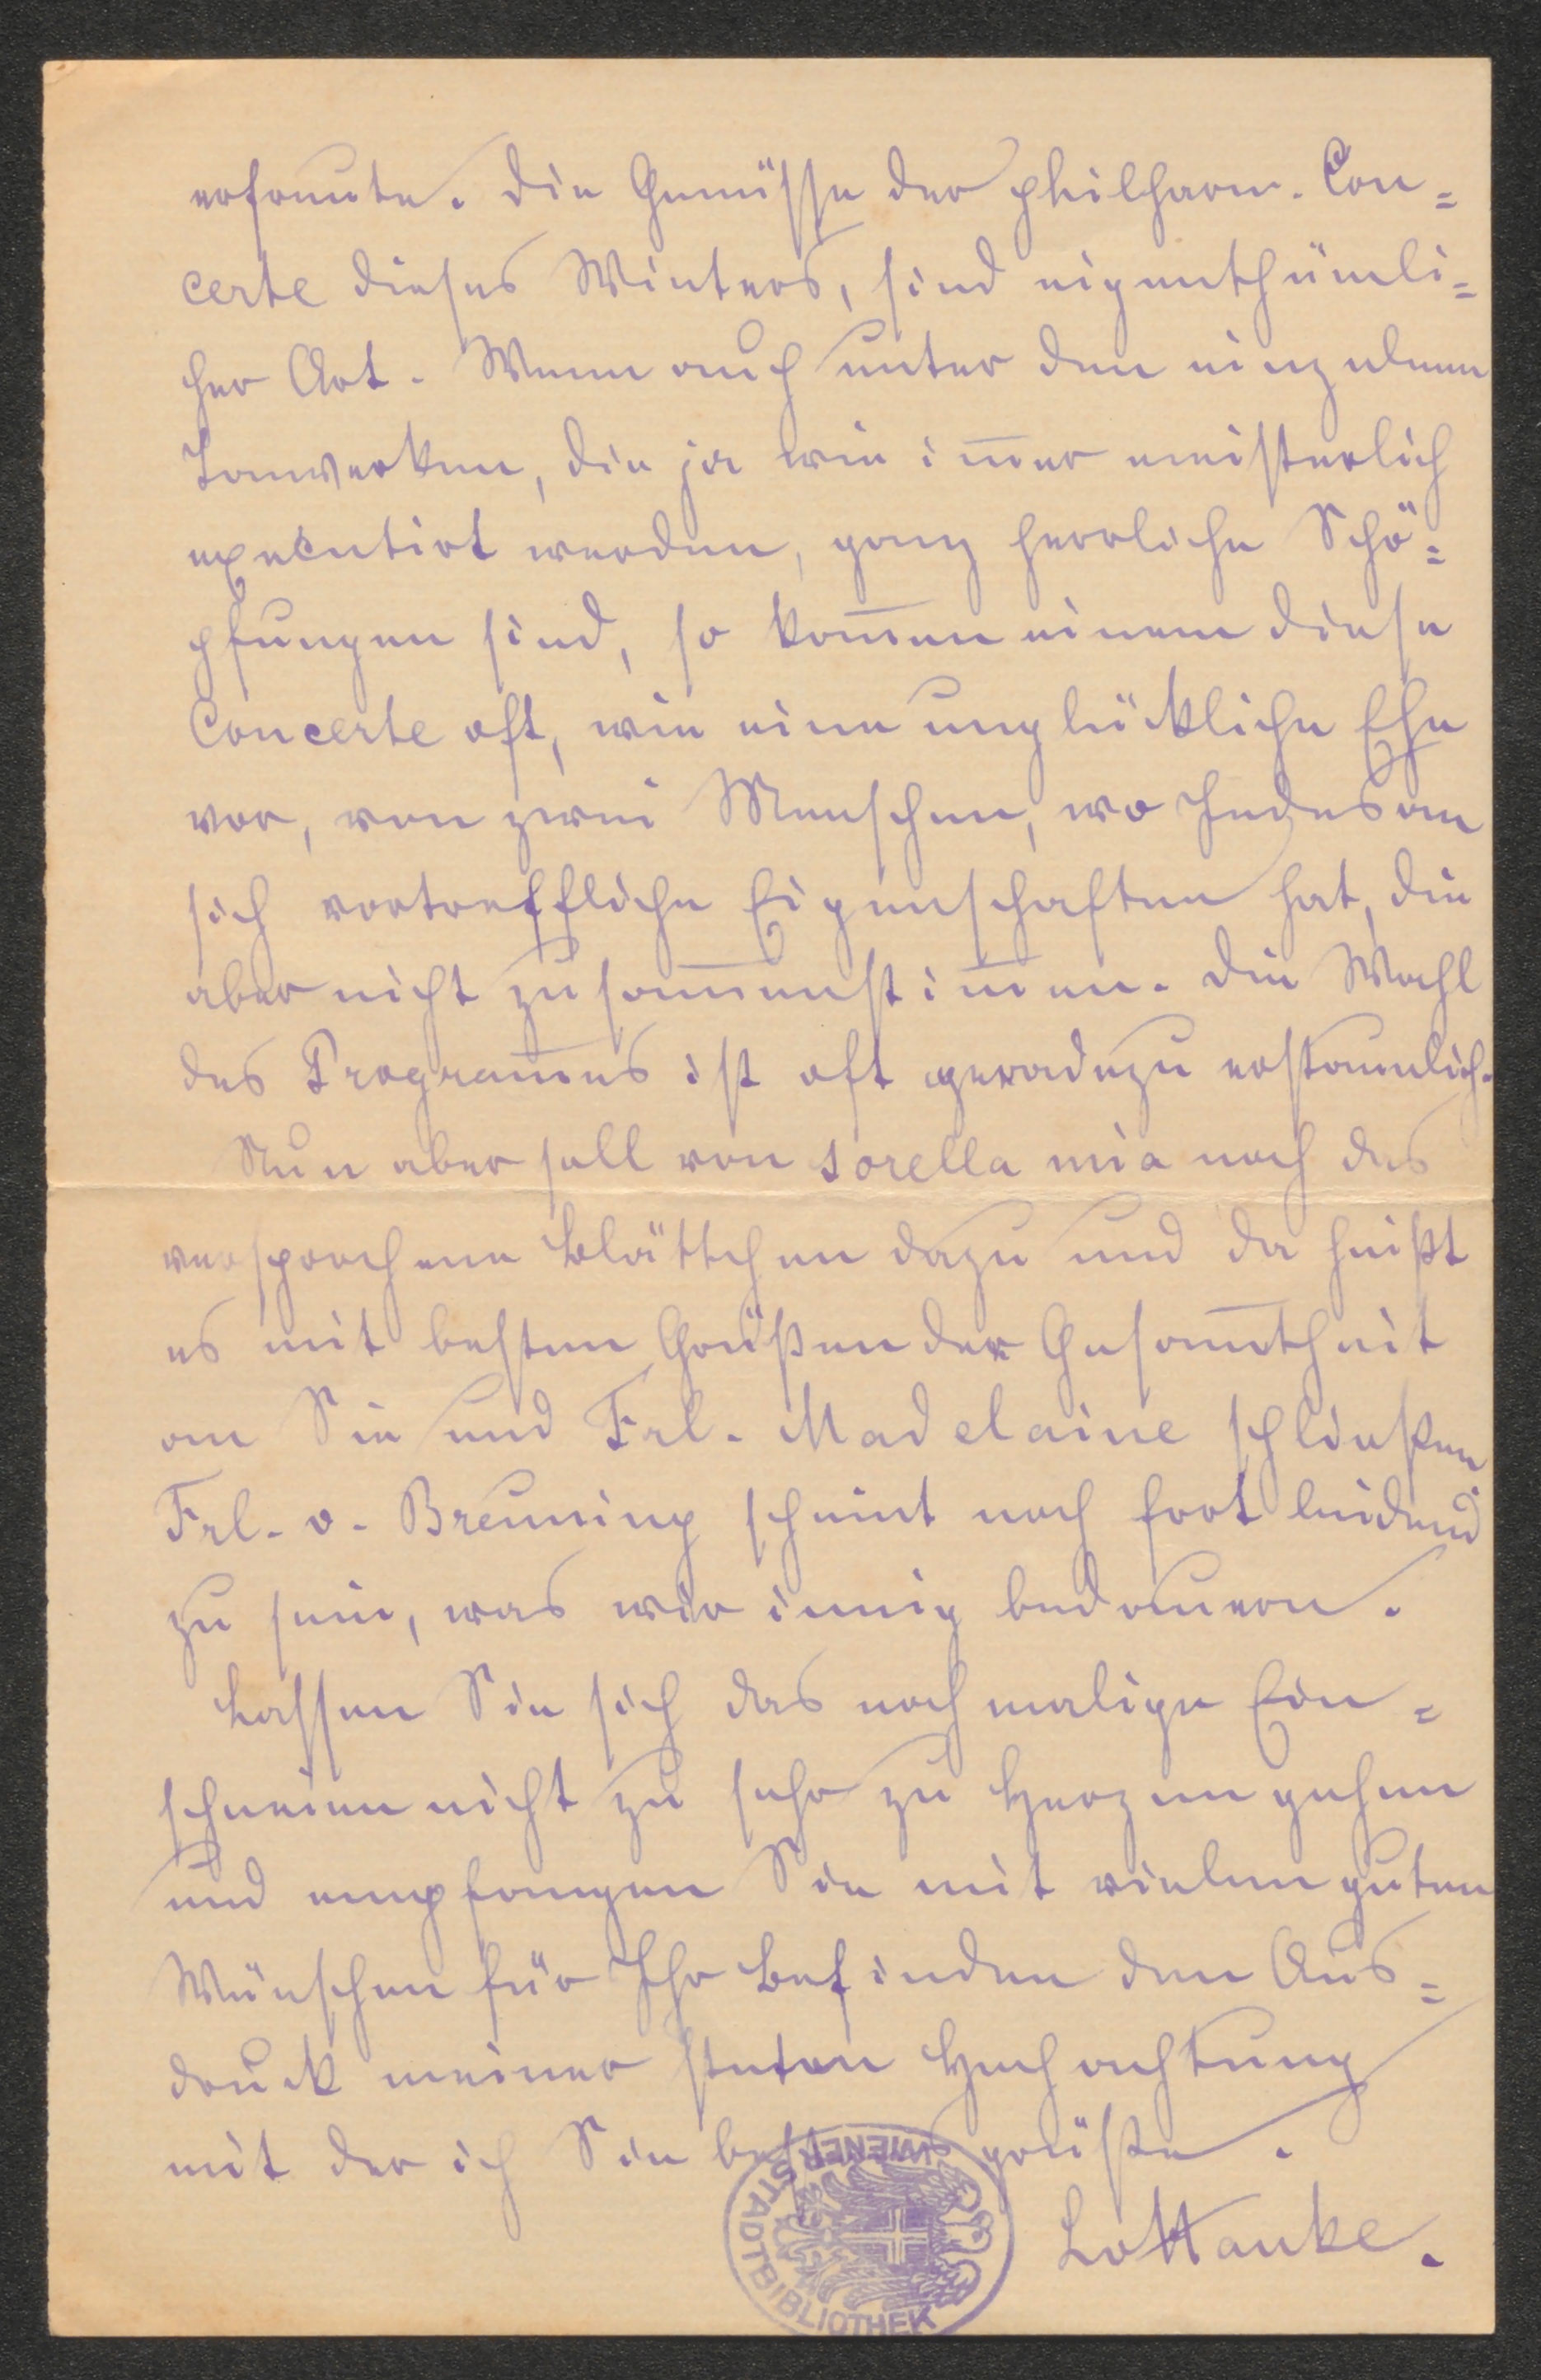 erfreute. Die Genüsse der philharm. Con=
certe dieses Winters, sind eigenthümli=
cher Art. Wenn auch unter den einzelnen
Tonwerken, die ja wie im̅er meisterlich
executirt werden, ganz herrliche Schö=
pfungen sind, so kom̅en einem diese
Concerte oft, wie eine unglückliche Ehe
vor, von zwei Menschen, wo Jedes an
sich vortreffliche Eigenschaften hat, die
aber nicht zusam̅enstim̅en. Die Wahl
des Program̅es ist oft geradezu erstaunlich.
Nun aber soll von sorella mia noch das
versprochene Blättchen dazu und da heißt
es mit besten Grüßen der Gesam̅theit
an Sie und Frl. Madelaine schließen
Frl. v. Breuning scheint noch fort leidend
zu sein, was wir innig bedauern.
Lassen Sie sich das nochmalige Ein=
schneien nicht zu sehr zu Herzen gehen
und empfangen Sie mit vielen guten
Wünschen für Ihr Befinden den Aus=
druck meiner steten Hochachtung
mit der ich Sie bestens grüße.
LottAnke.
WIENER STADTBIBLIOTHEK